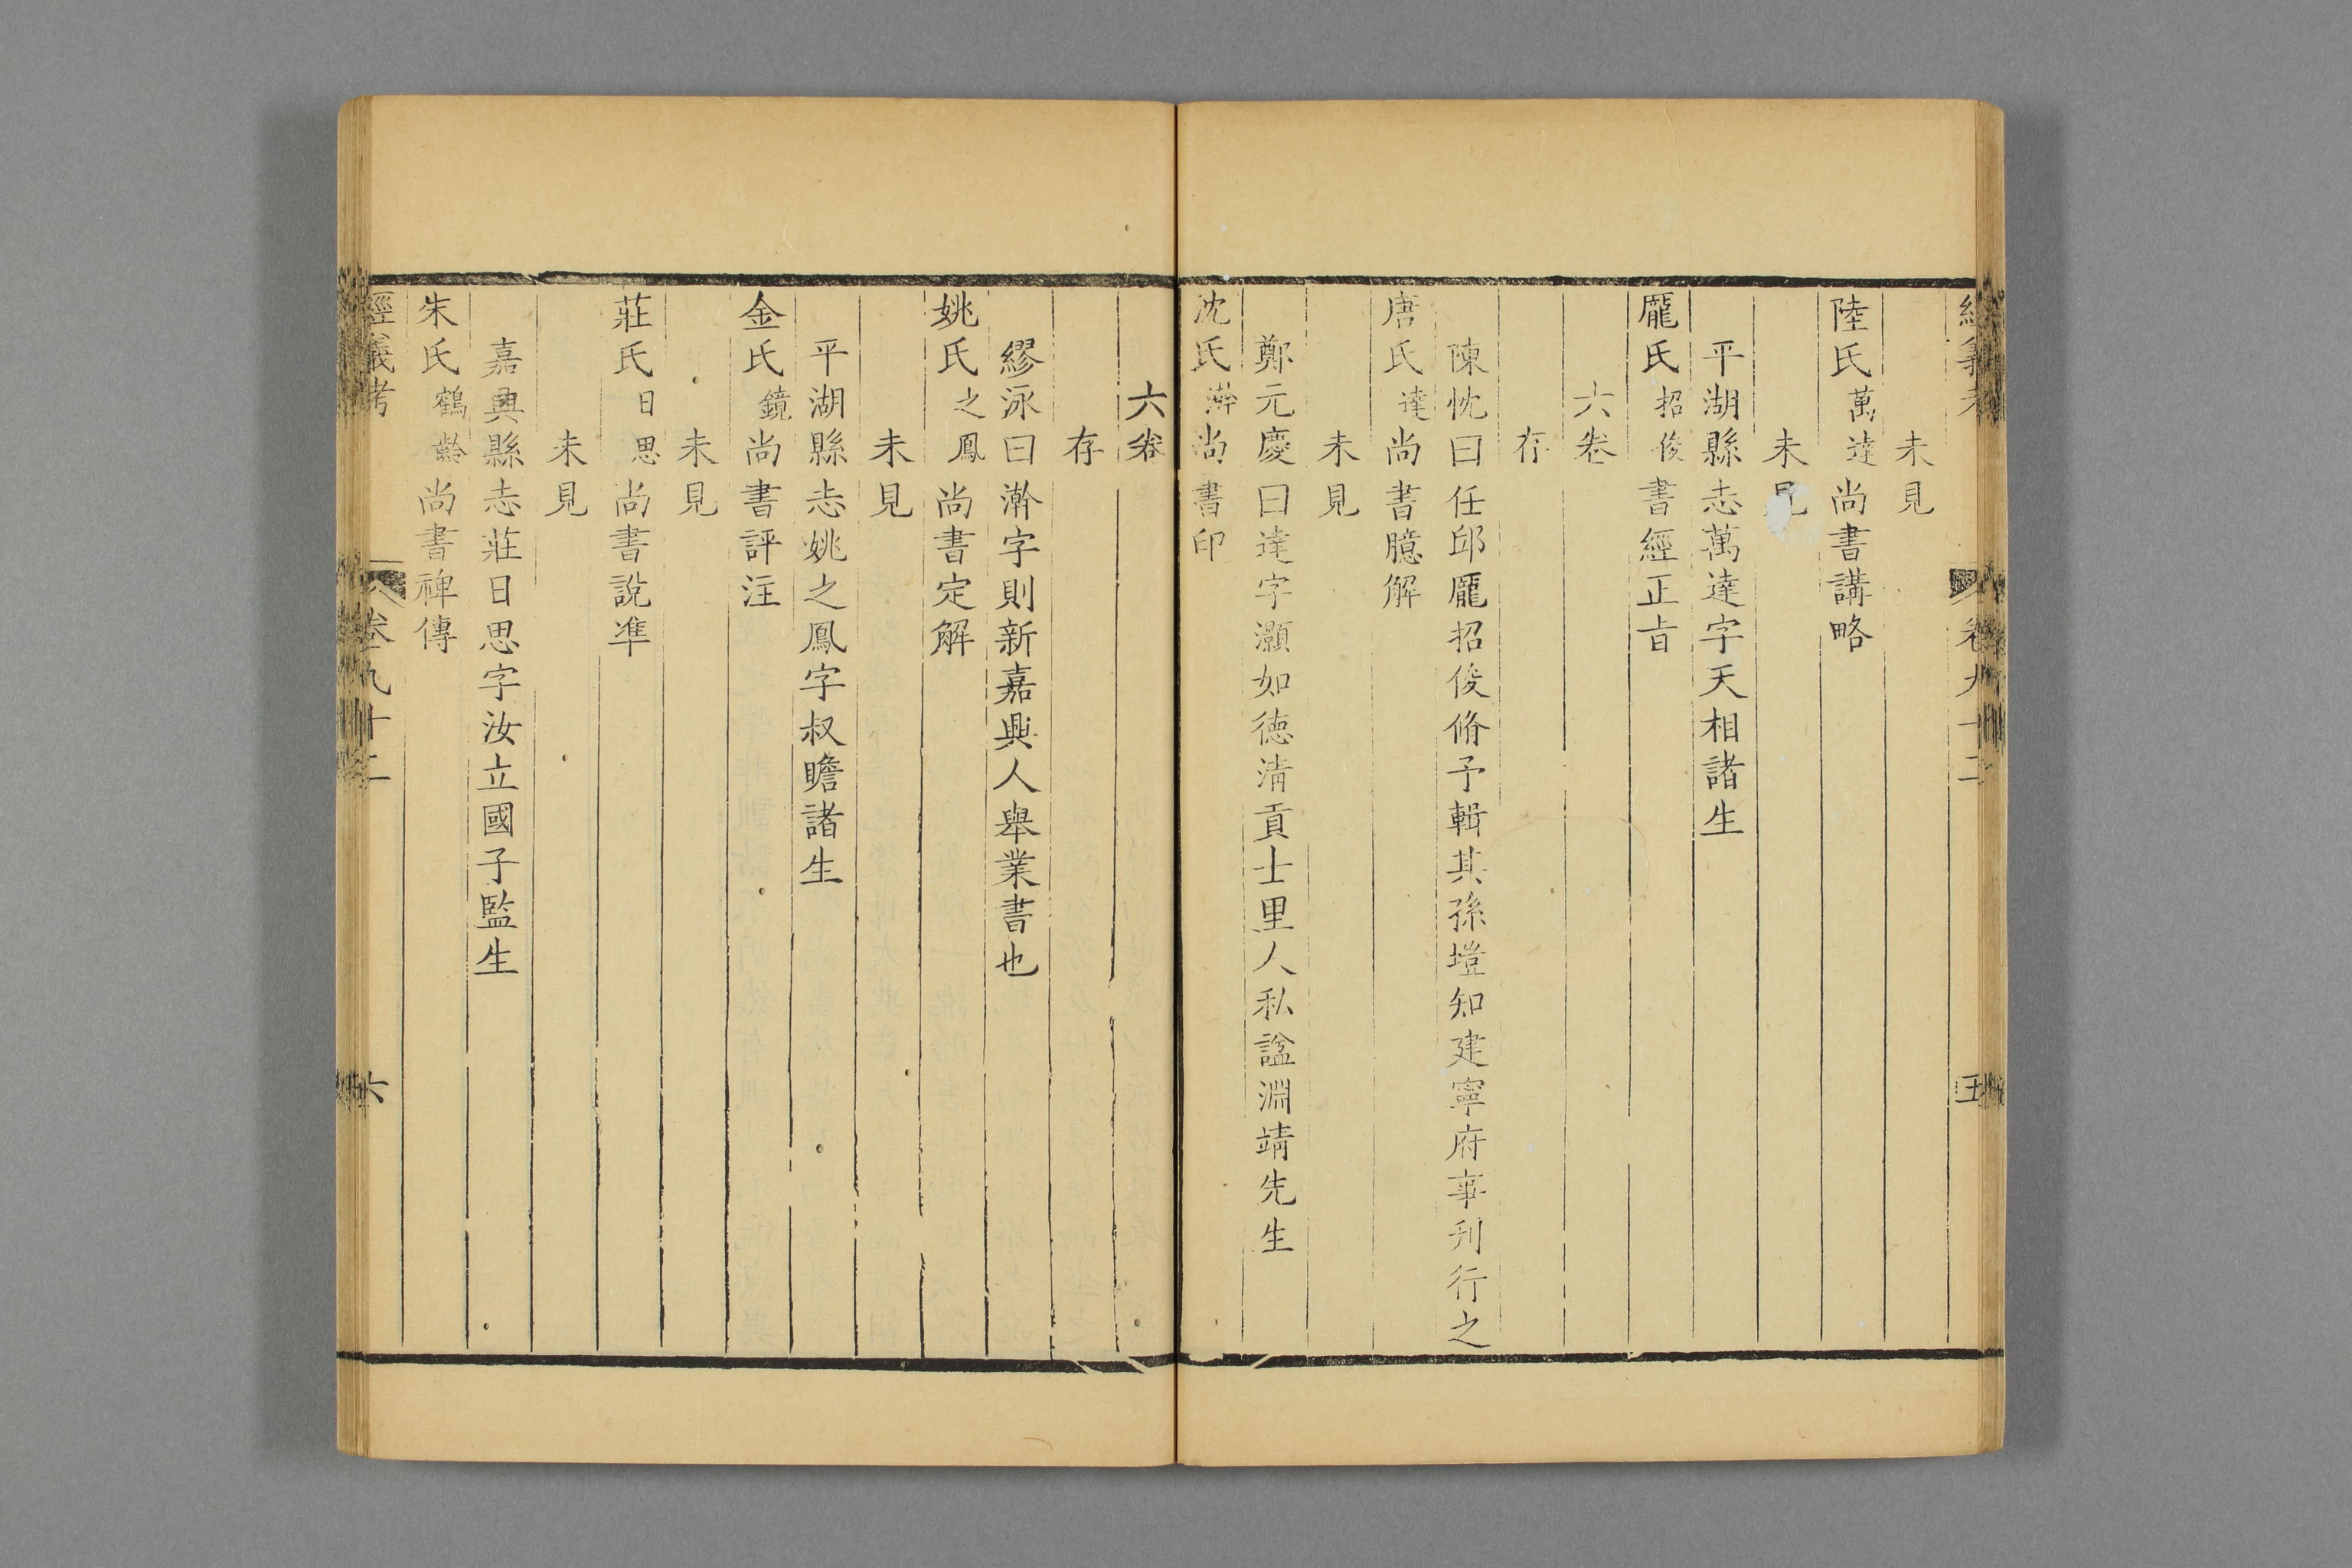 經義考 卷九十二 五
未見
陸氏萬達尚書講略
未見
平湖縣志萬達字天相諸生
龐氏招俊書經正旨
六卷
存
陳忱曰任邱龐招俊脩予輯其孫塏知建寧府事刋行之
唐氏達尚書臆解
未見
鄭元慶曰達字灝如德淸貢士里人私諡淵靖先生
沈氏澣尚書印
六卷
存
繆泳曰澣字則新嘉興人舉業書也
姚氏之鳳尚書定解
未見
平湖縣志姚之鳳字叔瞻諸生
金氏鏡尚書評注
未見
莊氏日思尚書說準
未見
嘉興縣志莊日思字汝立國子監生
朱氏鶴齡尚書禆傳
經義考 卷九十二 六